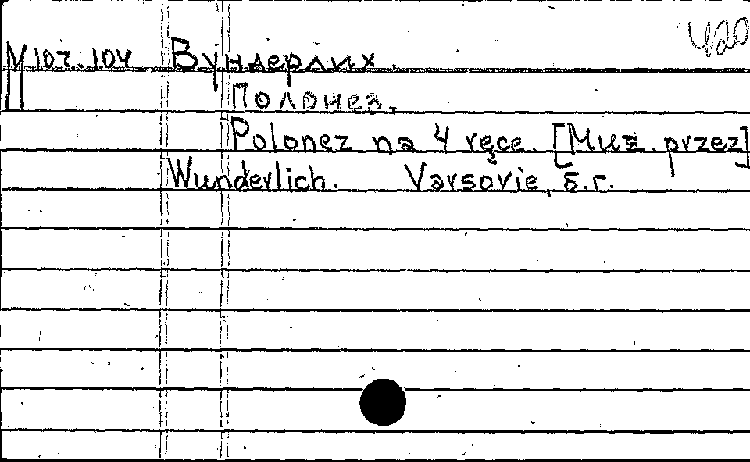 420
М 107.104 Вундерлих.
Полонез.
Polonez na 4 ręce. [Muz. przez]
Wunderlich. Varsovie, б.г.